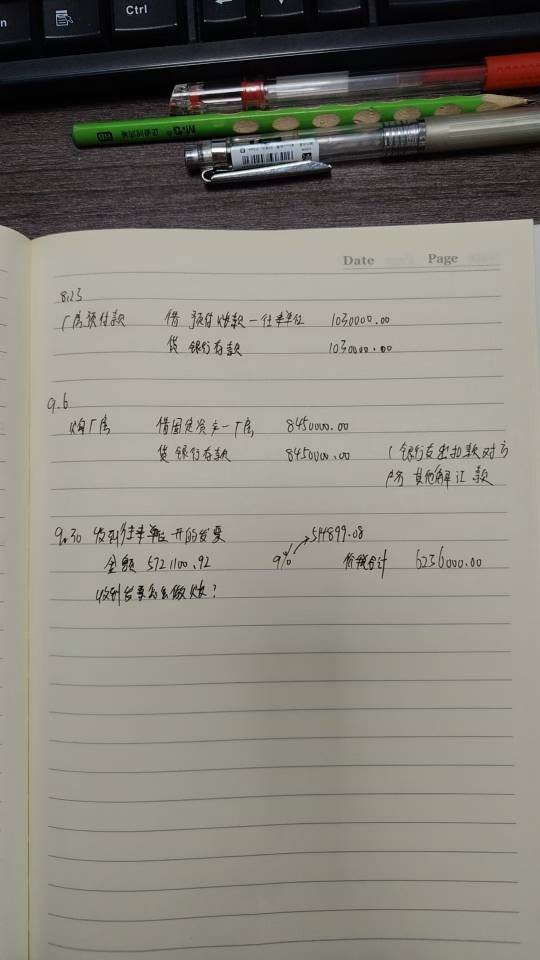 Ctrl
M&G
Date Page
8.23
厂房预付款 借 预付账款—往来单位 1030000.00
贷 银行存款 1030000.00
9.6
购厂房 借固定资产—厂房 8450000.00
贷 银行存款 8450000.00 (银行支出扣款对方
户名 其他解汇款
9.30 收到往来单位开的发票
金额 5721100.92 9% 514899.08 价税合计 6236000.00
收到发票怎么做账?